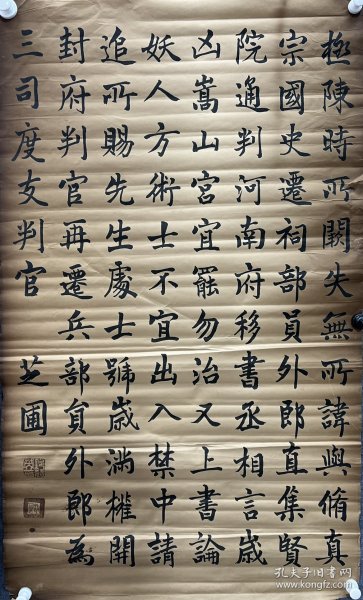 極陳時所闕失無所諱與脩真
宗國史遷祠部員外郎直集賢
院通判河南府移書丞相言歲
凶嵩山宮宜罷勿治又上書論
妖人方術士不宜出入禁中請
追所賜先生處士號歲滿權開
封府判官再遷兵部員外郎為
三司度支判官
芝圃
孔夫子旧书网
www.kongfz.com